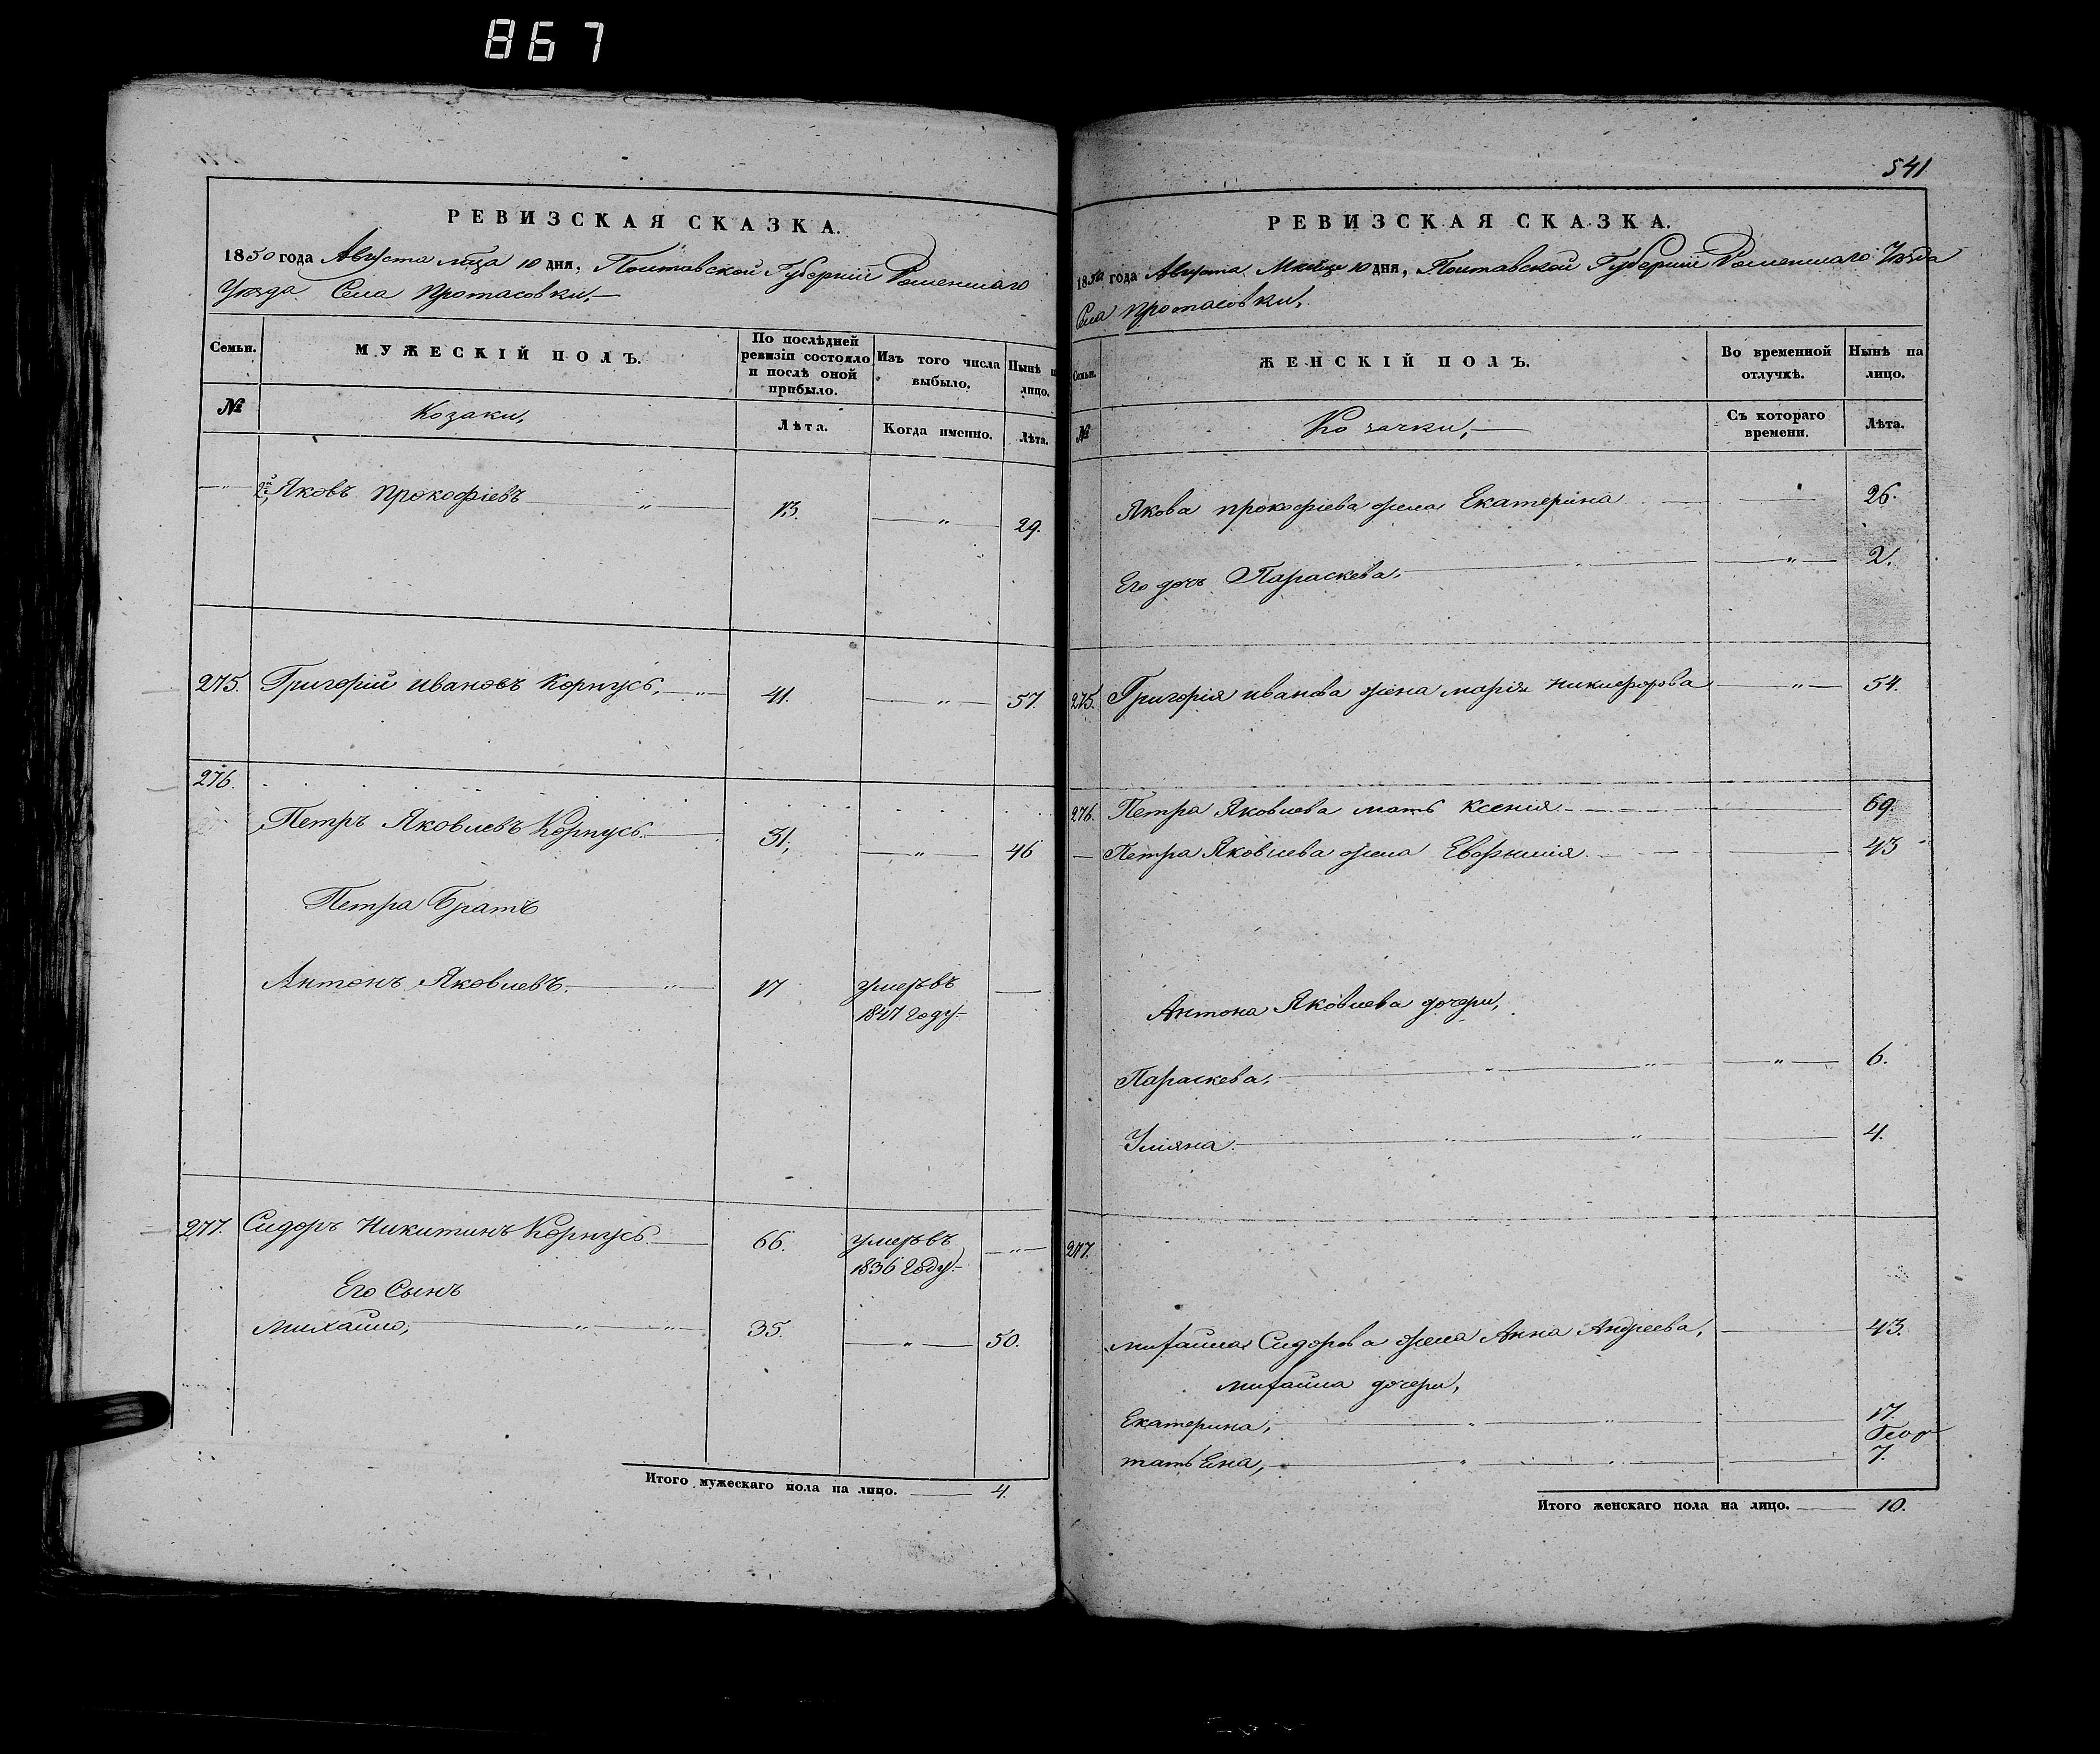 867
РЕВИЗСКАЯ СКАЗКА.
1850 года Августа м̃ца 10 дня, Полтавской Губерніи Роменскаго
Уѣзда Села Протасовки,
Семьи.
МУЖЕСКІЙ ПОЛЪ.
По послѣдней ревизіи состояло и послѣ оной прибыло.
Изъ того числа выбыло.
Нынѣ на лицо.
№
Козаки,
Лѣта.
Когда именно.
Лѣта.
2й Яковъ Прокофіевъ 13. 29.
275. Григорій Ивановъ Корпусъ, 41. 57.
276.
Петръ Яковлевъ Корпусъ. 31, 46
Петра Братъ
Антонъ Яковлевъ. 17 умеръ въ
1847 году
277. Сидоръ Никитинъ Корпусъ. 66. умеръ въ
1836 году.
Его Сынъ
Михайло, 35. 50.
Итого мужескаго пола на лицо. 4.
541
РЕВИЗСКАЯ СКАЗКА.
1850 года Августа Мѣсяца 10 дня, Полтавской Губерніи Роменскаго Уѣзда
Села Протасовки,
Семьи.
ЖЕНСКІЙ ПОЛЪ.
Во временной отлучкѣ.
Нынѣ на лицо.
№
Козачки,
Съ котораго времени.
Лѣта.
Якова Прокофіева жена Екатерина 26.
Его дочь Параскева. 2.
275. Григорія Иванова жена Марія Никифорова 54.
276. Петра Яковлева мать Ксенія 69.
Петра Яковлева жена Евфимія 43
Антона Яковлева дочери,
Параскева, 6.
Уліяна 4.
277.
Михайла Сидорова жена Анна Андреева, 43.
Михайла дочери,
Екатерина, 17.
Татьяна, 7.
Итого женскаго пола на лицо. 10.